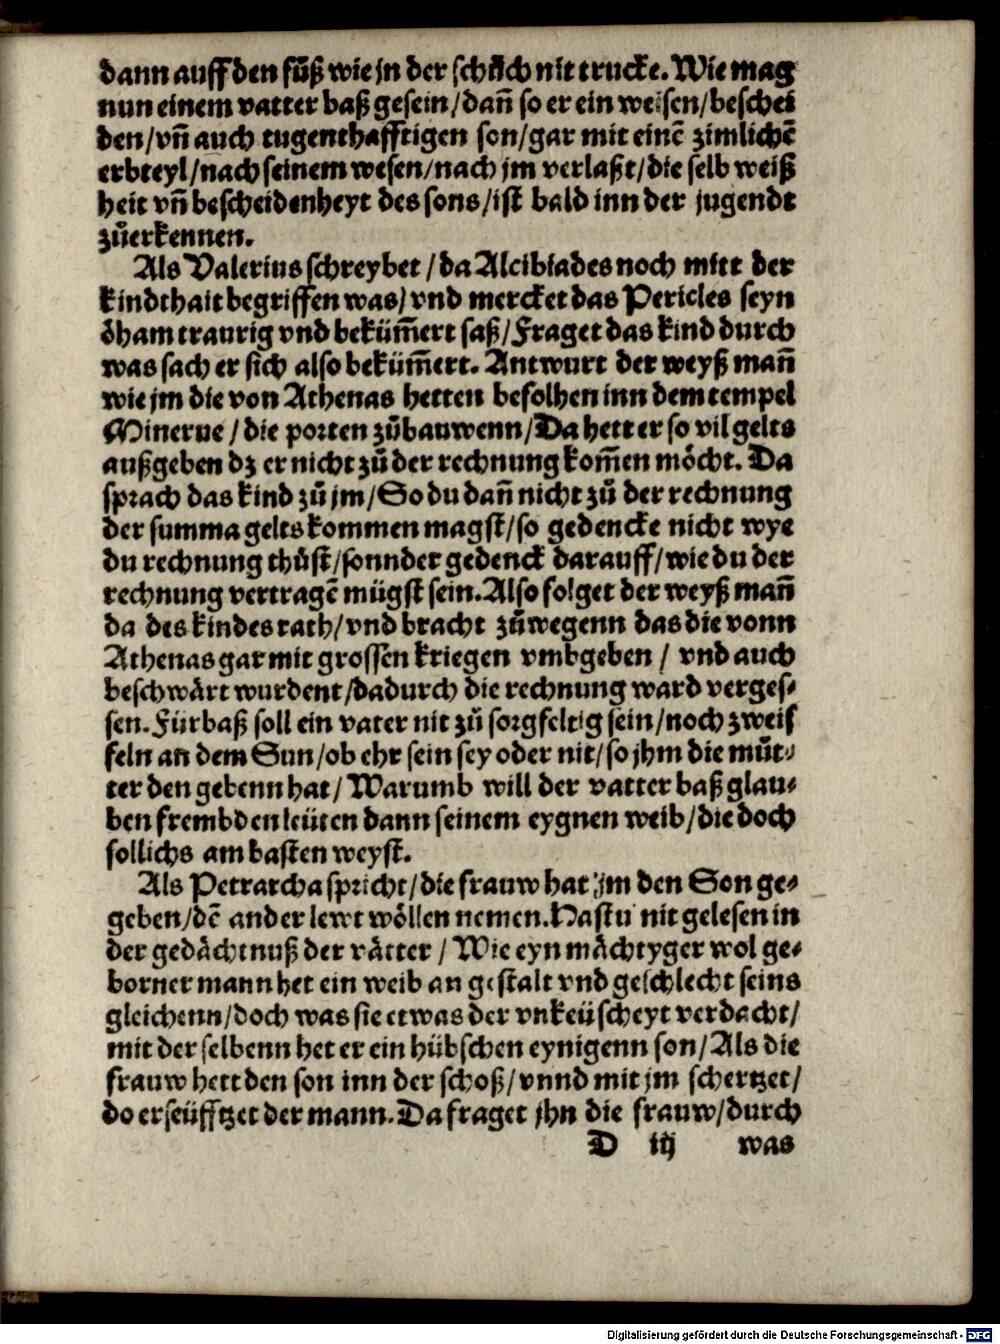 dann auff den fuͦß wie jn der schuͦch nit trucke. Wie mag
nun einem vatter baß gesein / dañ so er ein weisen / beschei
den / vñ auch tugenthafftigen son / gar mit einē zimlichē
erbteyl / nach seinem wesen / nach jm verlaßt / die selb weiß
heit vñ bescheidenheyt des sons / ist bald inn der jugendt
zuͦerkennen.
Als Valerius schreybet / da Alcibiades noch mitt der
kindthait begriffen was / vnd mercket das Pericles seyn
oͤham traurig vnd beküm̄ert saß / Fraget das kind durch
was sach er sich also beküm̄ert. Antwurt der weyß mañ
wie jm die von Athenas hetten befolhen inn dem tempel
Minerue / die porten zuͦbauwenn / Da hett er so vil gelts
außgeben dz er nicht zuͦ der rechnung kom̄en moͤcht. Da
sprach das kind zuͦ jm / So du dañ nicht zuͦ der rechnung
der summa gelts kommen magst / so gedencke nicht wye
du rechnung thuͦst / sonnder gedenck darauff / wie du der
rechnung vertragē mügst sein. Also folget der weyß mañ
da des kindes rath / vnd bracht zuͦwegenn das die vonn
Athenas gar mit grossen kriegen vmbgeben / vnd auch
beschwaͤrt wurdent / dadurch die rechnung ward verges⸗
sen. Fürbaß soll ein vater nit zuͦ sorgfeltig sein / noch zweif
feln an dem Sun / ob ehr sein sey oder nit / so jhm die muͦt⸗
ter den gebenn hat / Warumb will der vatter baß glau⸗
ben frembden leüten dann seinem eygnen weib / die doch
sollichs am basten weyst.
Als Petrarcha spricht / die frauw hat jm den Son ge⸗
geben / dē ander lewt woͤllen nemen. Hastu nit gelesen in
der gedaͤchtnuß der vaͤtter / Wie eyn maͤchtyger wol ge⸗
borner mann het ein weib an gestalt vnd geschlecht seins
gleichenn / doch was sie etwas der vnkeüscheyt verdacht /
mit der selbenn het er ein hübschen eynigenn son / Als die
frauw hett den son inn der schoß / vnnd mit jm schertzet /
do erseüfftzet der mann. Da fraget jhn die frauw / durch
D iij was
Digitalisierung gefördert durch die Deutsche Forschungsgemeinschaft - DFG